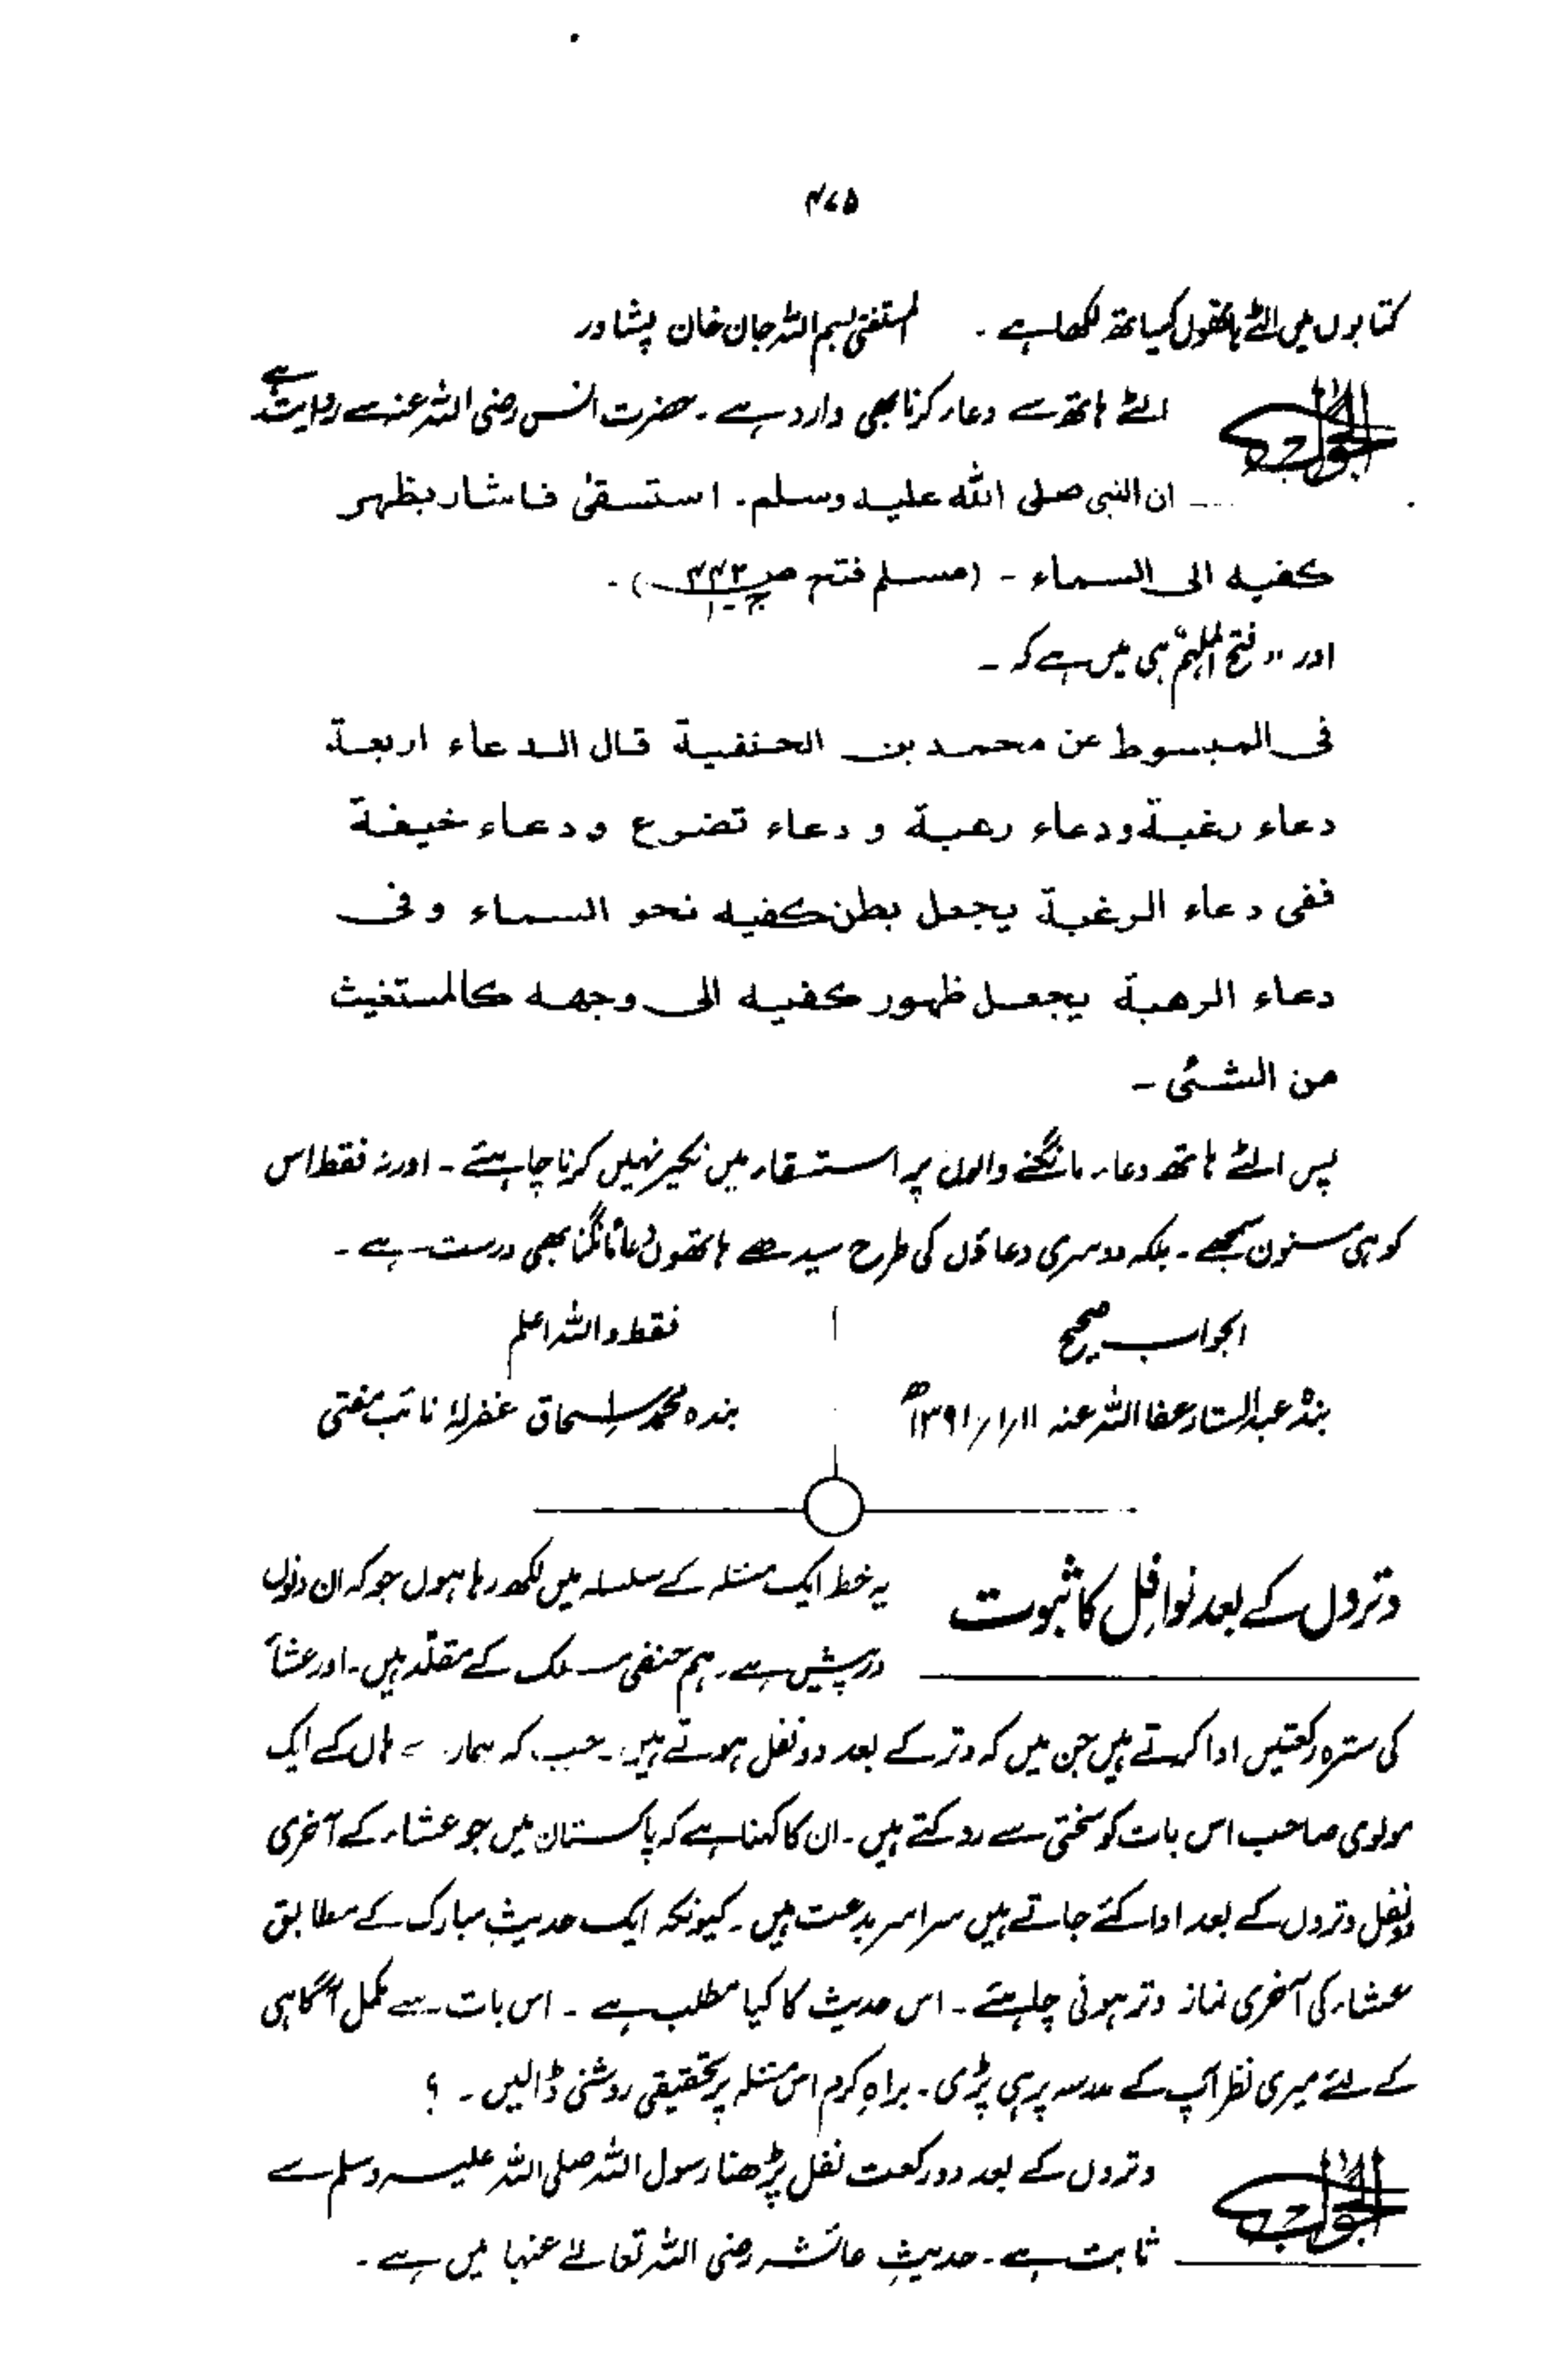 ۴۷۵
کتابوں میں الٹے ہاتھوں کیساتھ لکھا ہے ۔ المستفتی بسم اللہ جان خان پشاور
الجواب الٹے ہاتھ سے دعاء کرنا بھی وارد ہے ۔ حضرت انس رضی اللہ عنہ سے روایت ہے
ان النبی صلی اللہ علیہ وسلم ۔ استسقیٰ فاشار بظہر
کفیہ الی السماء ۔ (مسلم فتح ص۴۴۲ ج۔۱) ۔
اور "فتح الملہم" ہی میں ہے کہ ۔
فی المبسوط عن محمد بن الحنفیة قال الدعاء اربعة
دعاء رغبة ودعاء رهبة و دعاء تضرع و دعاء خیفة
ففی دعاء الرغبة یجعل بطن کفیہ نحو السماء و فی
دعاء الرهبة یجعل ظہور کفیہ الی وجهہ کالمستغیث
من الشئی ۔
پس الٹے ہاتھ دعاء مانگنے والوں پر استسقاء میں نکیر نہیں کرنا چاہیئے ۔ اور نہ فقط اس
کو ہی مسنون سمجھے ۔ بلکہ دوسری دعاؤں کی طرح سیدھے ہاتھوں دعا مانگنا بھی درست ہے ۔
الجواب صحیح فقط واللہ اعلم
بندہ عبدالستار عفا اللہ عنہ ۱۱؍۱؍۱۳۹۱ھ بندہ محمد اسحاق غفرلہٗ نائب مفتی
وتروں کے بعد نوافل کا ثبوت یہ خط ایک مسئلہ کے سلسلہ میں لکھ رہا ہوں جو کہ ان دنوں
درپیش ہے ۔ ہم حنفی مسلک کے مقلّد ہیں ۔ اور عشاء
کی سترہ رکعتیں ادا کرتے ہیں جن میں کہ وتر کے بعد دو نفل ہوتے ہیں ۔ جب کہ ہمارے ہاں کے ایک
مولوی صاحب اس بات کو سختی سے رد کتے ہیں ۔ ان کا کہنا ہے کہ پاکستان میں جو عشاء کے آخری
دو نفل وتروں کے بعد ادا کئے جاتے ہیں سراسر بدعت ہیں ۔ کیونکہ ایک حدیثِ مبارک کے مطابق
عشاء کی آخری نماز وتر ہونی چاہیئے ۔ اس حدیث کا کیا مطلب ہے ۔ اس بات سے مکمل آگاہی
کے لئے میری نظر آپ کے مدرسہ پر ہی پڑی ۔ براہِ کرم اس مسئلہ پر تحقیقی روشنی ڈالیں ۔ ؟
الجواب وتروں کے بعد دو رکعت نفل پڑھنا رسول اللہ صلی اللہ علیہ وسلم سے
ثابت ہے ۔ حدیثِ عائشہ رضی اللہ تعالےٰ عنہا میں ہے ۔